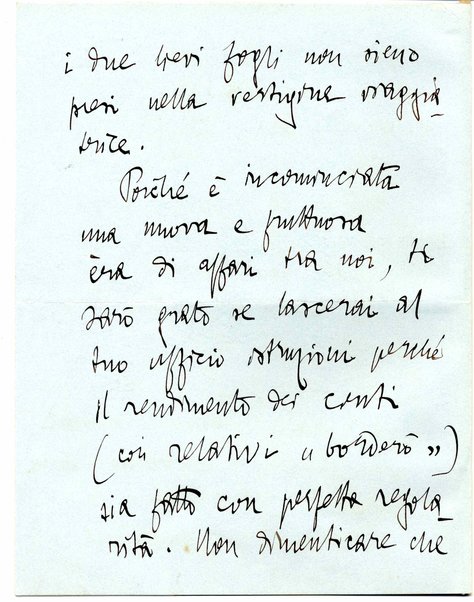 i due brevi fogli non sieno
presi nella vertigine viaggia-
trice.
Poiché è incominciata
una nuova e fruttuosa
èra di affari tra noi, ti
sarò grato se lascerai al
tuo ufficio istruzioni perché
il rendimento dei conti
(coi relativi « borderò »)
sia fatto con perfetta regola-
rità. Non dimenticare che